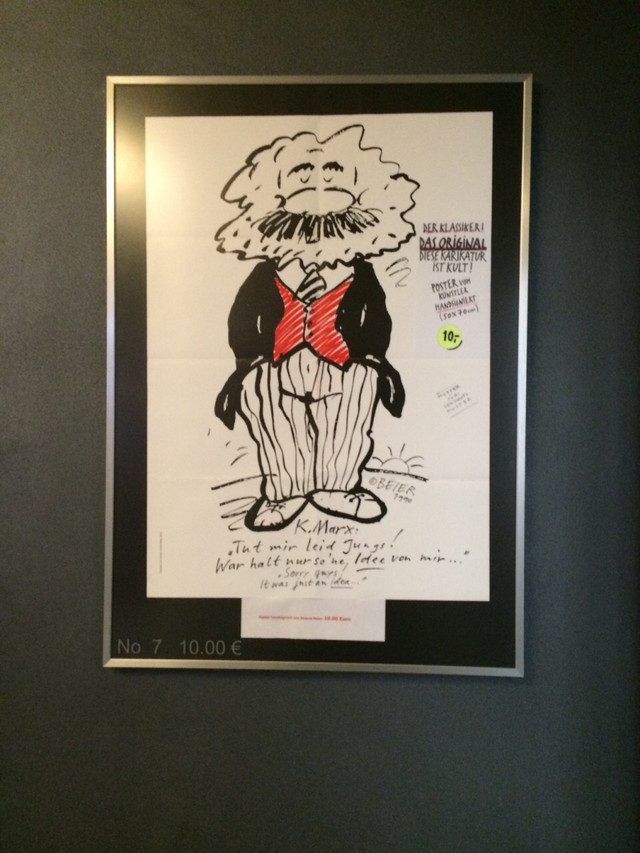 DER KLASSIKER!
DAS ORIGINAL
DIESE KARIKATUR
IST KULT!
POSTER VOM
KÜNSTLER
HANDSIGNIERT
(50X70cm)
10,-
©BEIER
1990
K. Marx:
"Tut mir leid Jungs!
War halt nur so 'ne Idee von mir..."
"Sorry guys!
It was just an idea..."
10.00 Euro
No 7 10.00 €